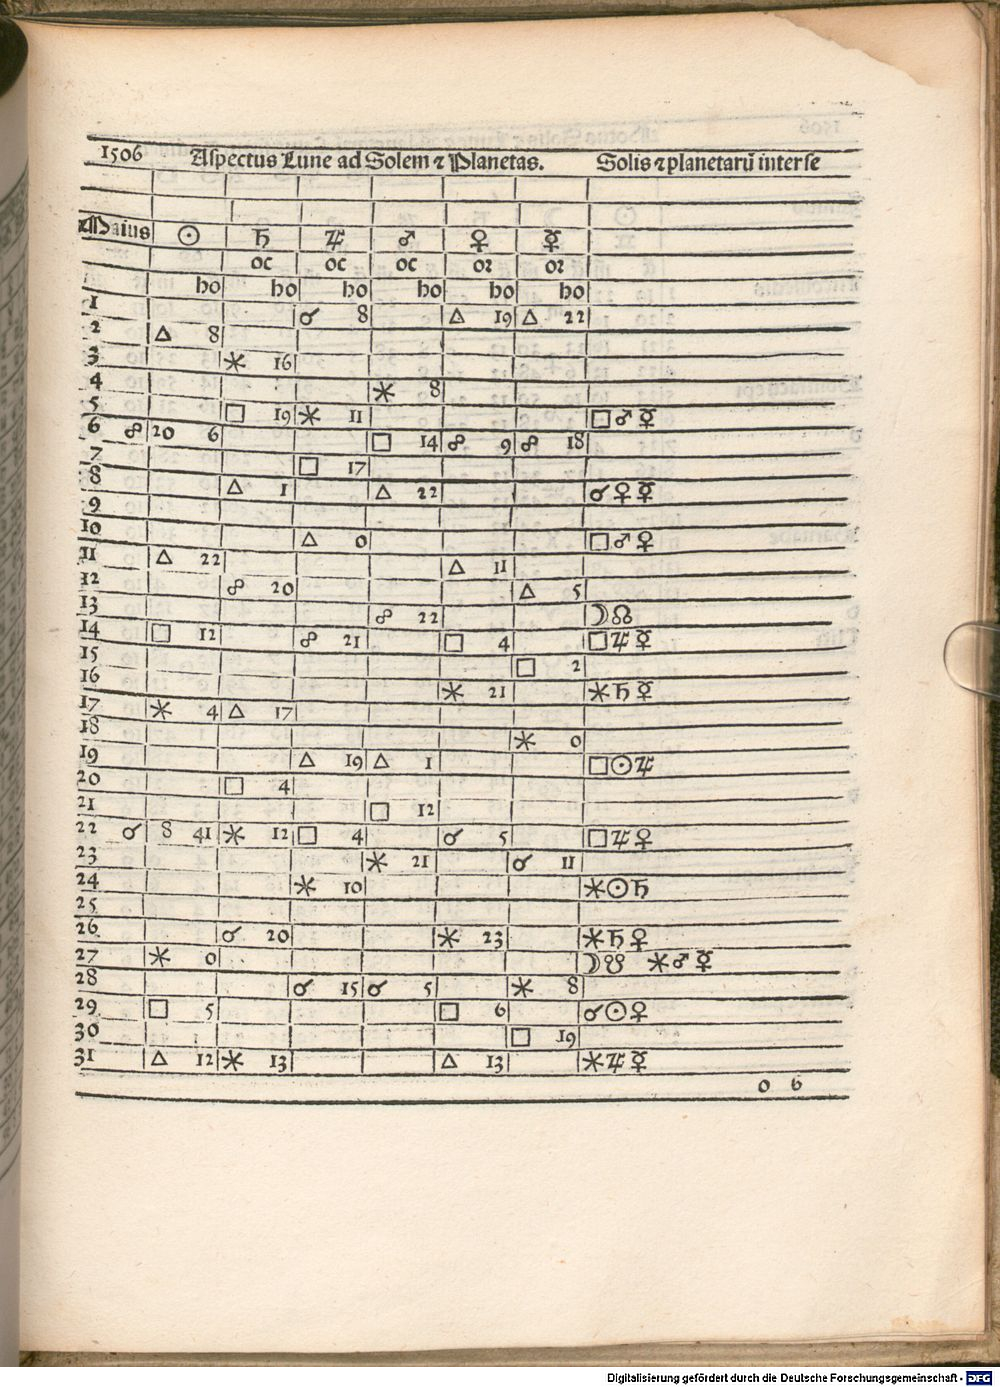 1506 Aspectus Lune ad Solem ⁊ Planetas. Solis ⁊ planetarū inter se
Maius ☉ ♄ ♃ ♂ ♀ ☿
oc oc oc oꝛ oꝛ
ho ho ho ho ho ho
1 ☌ 8 △ 19 △ 22
2 △ 8
3 ⚹ 16
4 ⚹ 8
5 □ 19 ⚹ 11 □♂☿
6 ☍ 20 6 □ 14 ☍ 9 ☍ 18
7 □ 17
8 △ 1 △ 22 ☌♀☿
9
10 △ 0 □♂♀
11 △ 22 △ 11
12 ☍ 20 △ 5
13 ☍ 22 ☽☊
14 □ 12 ☍ 21 □ 4 □♃☿
15 □ 2
16 ⚹ 21 ⚹♄☿
17 ⚹ 4 △ 17
18 ⚹ 0
19 △ 19 △ 1 □☉♃
20 □ 4
21 □ 12
22 ☌ 8 41 ⚹ 12 □ 4 ☌ 5 □♃♀
23 ⚹ 21 ☌ 11
24 ⚹ 10 ⚹☉♄
25
26 ☌ 20 ⚹ 23 ⚹♄♀
27 ⚹ 0 ☽☋ ⚹♂☿
28 ☌ 15 ☌ 5 ⚹ 8
29 □ 5 □ 6 ☌☉♀
30 □ 19
31 △ 12 ⚹ 13 △ 13 ⚹♃☿
0 6
Digitalisierung gefördert durch die Deutsche Forschungsgemeinschaft - DFG